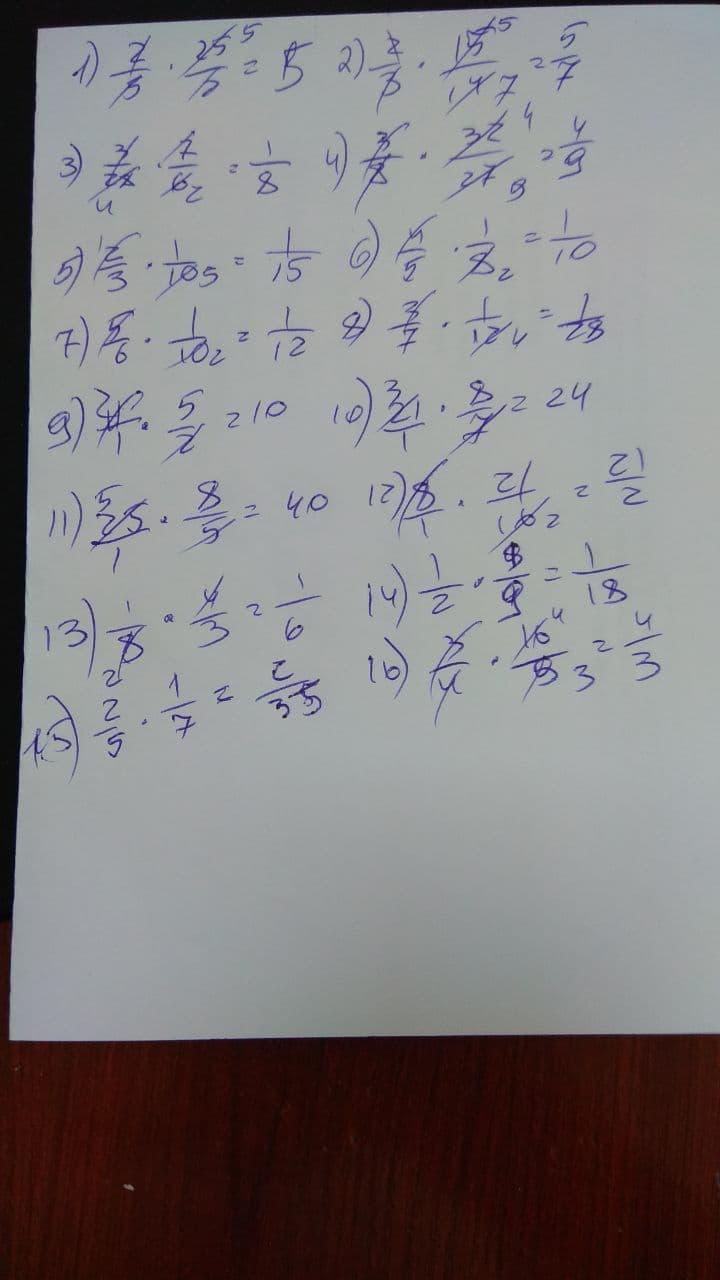 1) 2/5 · 25 5/5 = 5 2) 2/3 · 15 5/14 7 = 5/7
3) 3/28 4 · 7/6 2 = 1/8 4) 3/8 · 32 4/27 9 = 4/9
5) 1 2/3 · 1/10 5 = 1/15 6) 4/5 · 1/8 2 = 1/10
7) 5/6 · 1/10 2 = 1/12 8) 3/7 · 1/12 4 = 1/28
9) /1 · 5/2 = 10 10) 3 21/1 · 8/7 = 24
11) 5 25/1 · 8/5 = 40 12) 8/1 · 21/16 2 = 21/2
13) 1/8 2 · 4/3 = 1/6 14) 1/2 · /9 = 1/18
15) 2/5 · 1/7 = 2/35 16) /4 · 16 4/ 3 = 4/3